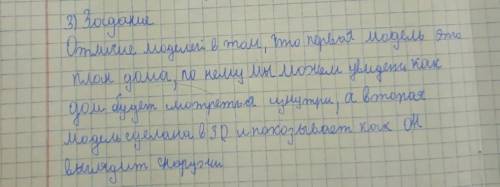 3) Зогдание
Отличие моделей в том, что первая модель это
план дома, по нему мы можем увидеть как
дом будет смотреться изнутри, а вторая
модель сделана в 3D и показывает как он
выглядит снаружи